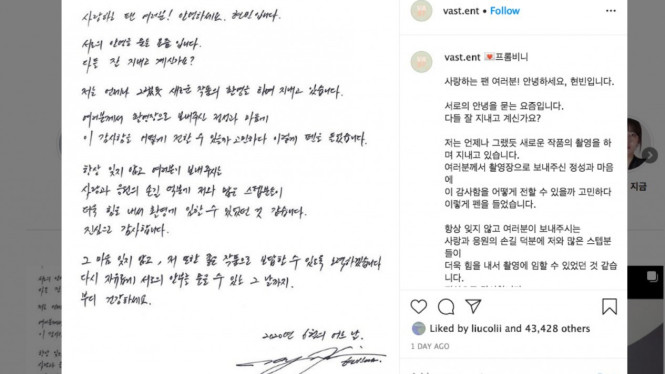 사랑하는 팬 여러분! 안녕하세요. 현빈입니다.
서로의 안녕을 묻는 요즘입니다.
다들 잘 지내고 계신가요?
저는 언제나 그랬듯 새로운 작품의 촬영을 하며 지내고 있습니다.
여러분께서 촬영장으로 보내주신 정성과 마음에
이 감사함을 어떻게 전할 수 있을까 고민하다 이렇게 펜을 들었습니다.
항상 잊지 않고 여러분이 보내주시는
사랑과 응원의 손길 덕분에 저와 많은 스텝분들이
더욱 힘을 내서 촬영에 임할 수 있었던 것 같습니다.
진심으로 감사합니다.
그 마음 잊지 않고, 저 또한 좋은 작품으로 보답할 수 있도록 노력하겠습니다
다시 자유롭게 서로의 안부를 물을 수 있는 그 날까지.
부디 건강하세요.
2020년 6월의 어느 날.
vast.ent • Follow
vast.ent 💌프롬비니
사랑하는 팬 여러분! 안녕하세요, 현빈입니다.
서로의 안녕을 묻는 요즘입니다.
다들 잘 지내고 계신가요?
저는 언제나 그랬듯 새로운 작품의 촬영을 하
며 지내고 있습니다.
여러분께서 촬영장으로 보내주신 정성과 마음
에
이 감사함을 어떻게 전할 수 있을까 고민하다
이렇게 펜을 들었습니다.
항상 잊지 않고 여러분이 보내주시는
사랑과 응원의 손길 덕분에 저와 많은 스텝분
들이
더욱 힘을 내서 촬영에 임할 수 있었던 것 같습
니다.
Liked by liucolii and 43,428 others
1 DAY AGO
지금